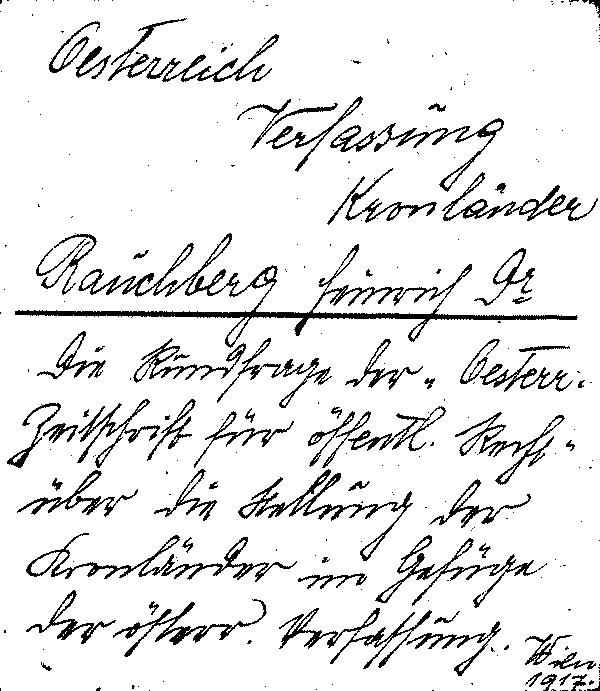 Oesterreich
Verfassung
Kronländer
Rauchberg Heinrich Dr
Die Rundfrage der „Oesterr.
Zeitschrift für öffentl. Recht"
über die Stellung der
Kronländer im Gefüge
der österr. Verfassung.
Wien
1917.